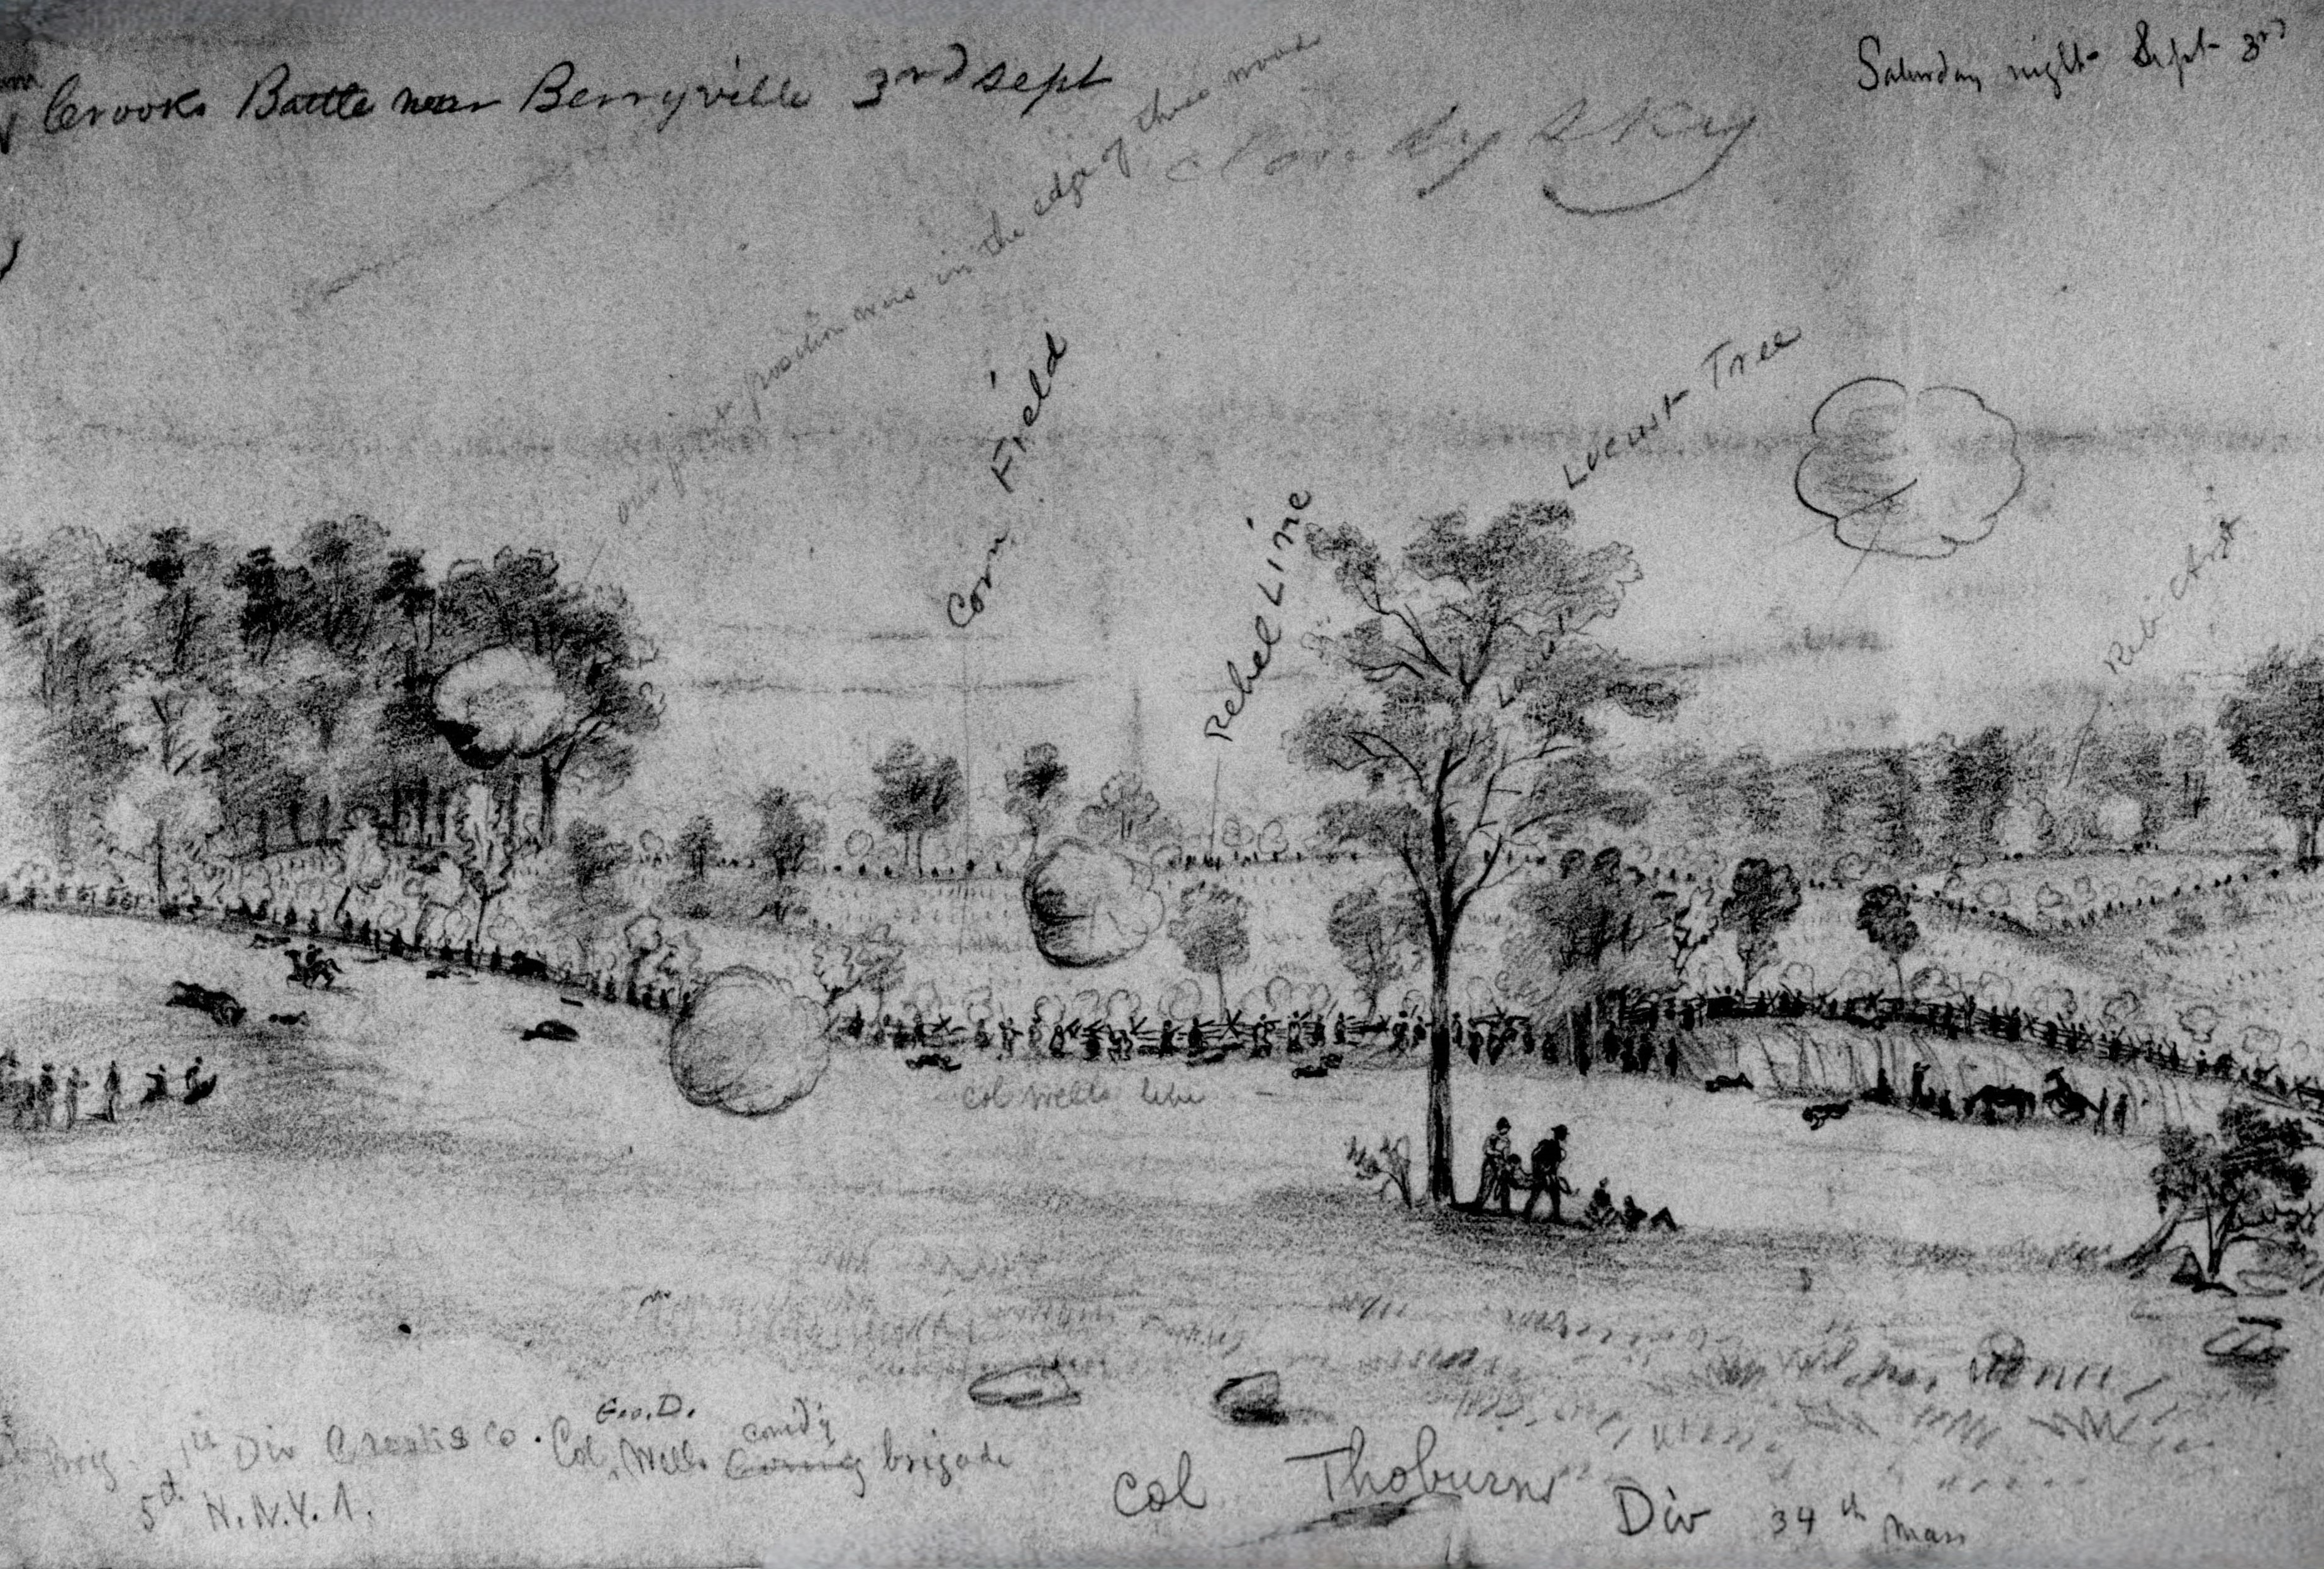 Crooks Battle near Berryville 3rd sept
Saturday night Sept 3rd
Cloudy sky
our first position was in the edge of these woods
Corn Field
Rebel Line
Locust Tree
Col Wells line
Geo. D.
Brig. 1st Div Crooks Co. Col. Wells comd'g brigade
5th N.Y.
Col Thoburns Div 34th Mass